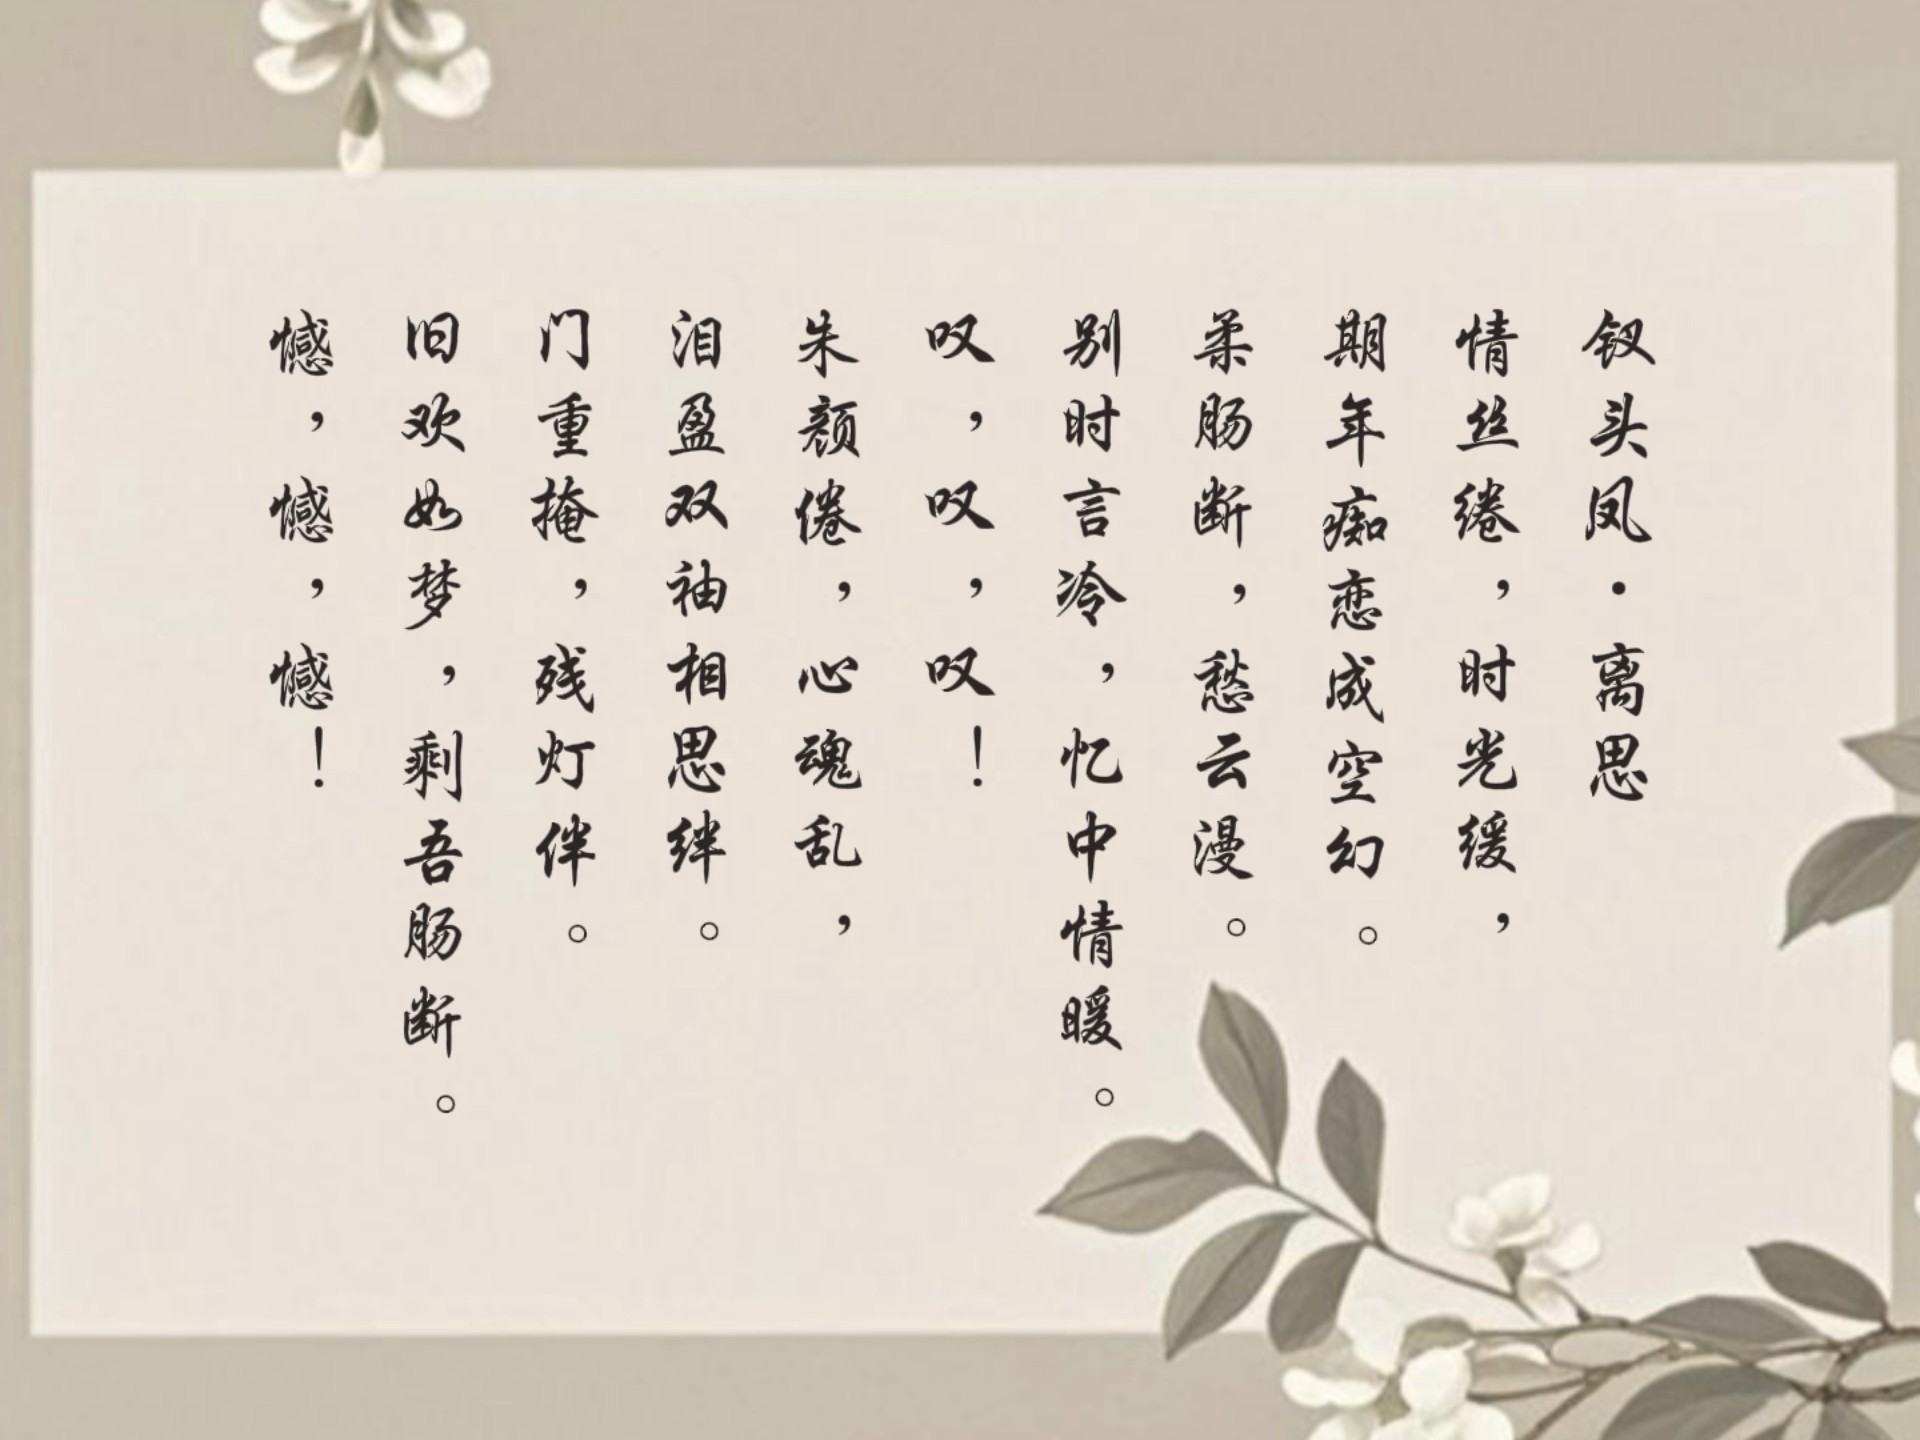 钗头凤·离思
情丝绻，时光缓，
期年痴恋成空幻。
柔肠断，愁云漫。
别时言冷，忆中情暖。
叹，叹，叹！
朱颜倦，心魂乱，
泪盈双袖相思绊。
门重掩，残灯伴。
旧欢如梦，剩吾肠断。
憾，憾，憾！